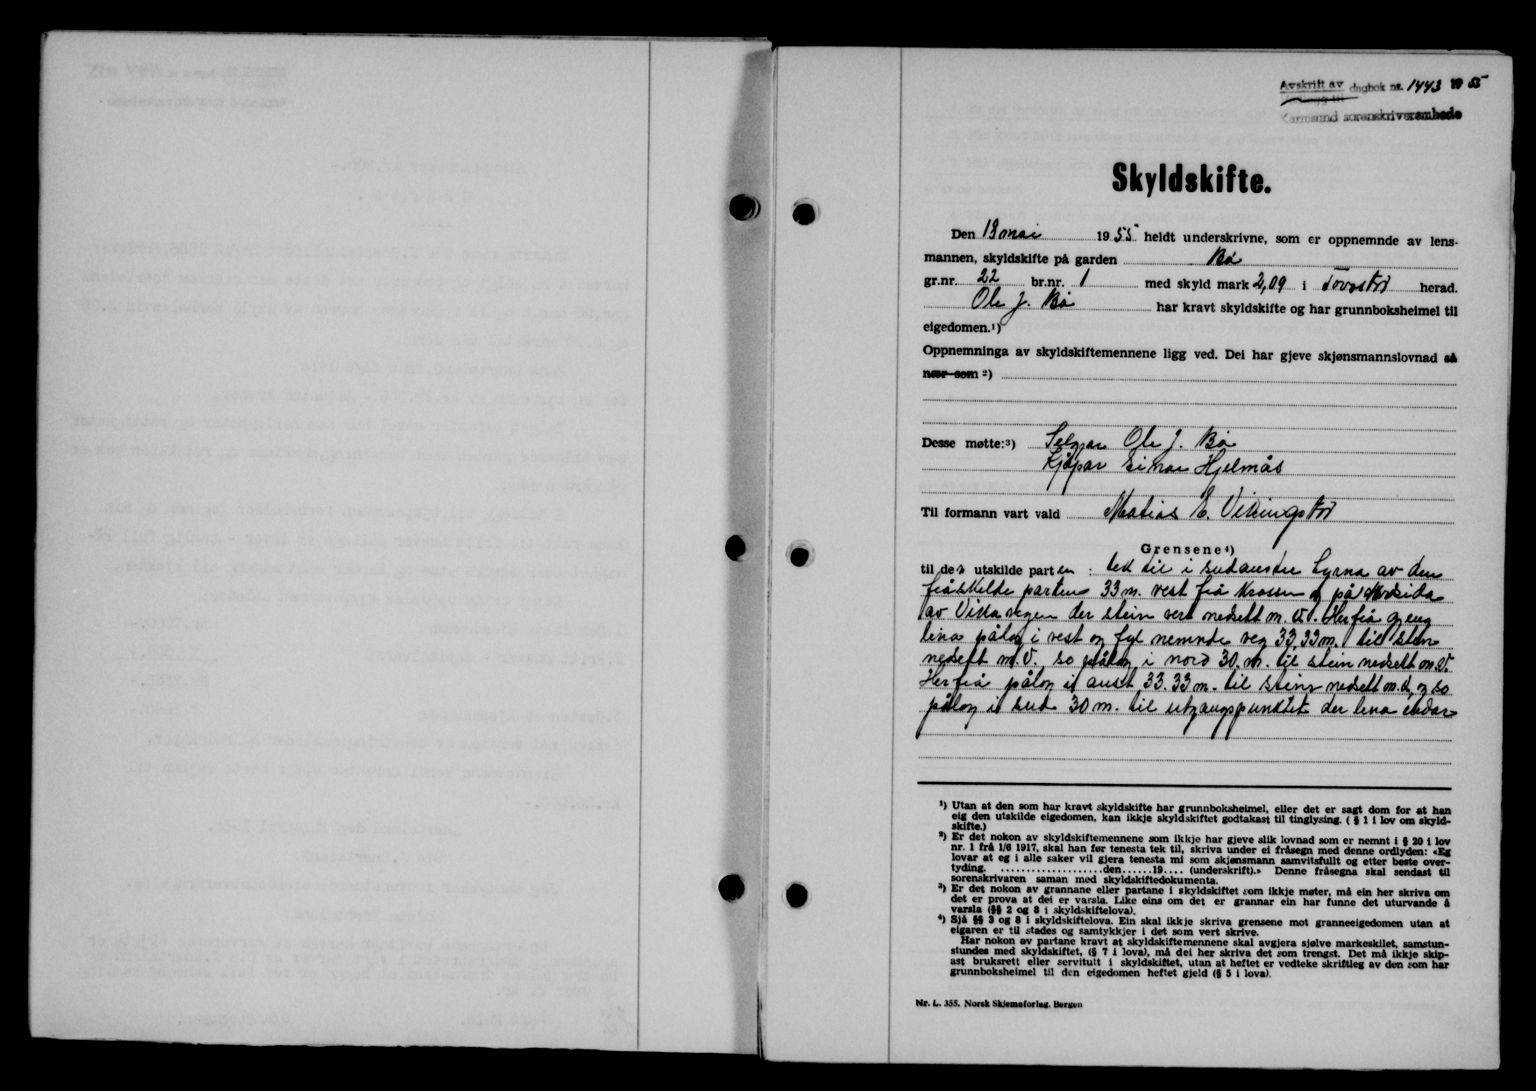 Avskrift av dagbok nr. 1443 1955
Karmsund sorenskriverembede
Skyldskifte.
Den 13 mai 1955 heldt underskrivne, som er oppnemnde av lens-
mannen, skyldskifte på garden Bø
gr.nr. 22 br.nr. 1 med skyld mark 2,09 i Torvastad herad.
Ole J. Bø har kravt skyldskifte og har grunnboksheimel til
eigedomen.¹)
Oppnemninga av skyldskiftemennene ligg ved. Dei har gjeve skjønsmannslovnad så
nær som ²)
Desse møtte:³) Seljar Ole J. Bø
Kjøpar Einar Hjelmås
Til formann vart vald Matias E. Vikingstad
Grensene⁴)
til den utskilde parten : tek til i sudaustre hyrna av den
fråskilde parten 33 m. vest frå krossen og på nordsida
av Vikavegen der stein vert nedsett m. V. Herfrå geng
lina pålag i vest og fyl nemnde veg 33,33 m. til stein
nedsett m.V. so pålag i nord 30. m. til stein nedsett m.V.
Herfrå pålag i aust 33.33 m. til stein nedsett m.V. og so
pålag i sud 30 m. til utgangspunktet der lina endar
¹) Utan at den som har kravt skyldskifte har grunnboksheimel, eller det er sagt dom for at han
eig den utskilde eigedomen, kan ikkje skyldskiftet godtakast til tinglysing. ( § 1 i lov om skyld-
skifte.)
²) Er det nokon av skyldskiftemennene som ikkje har gjeve slik lovnad som er nemnt i § 20 i lov
nr. 1 frå 1/6 1917, skal han før tenesta tek til, skriva under ei fråsegn med denne ordlyden: «Eg
lovar at eg i alle saker vil gjera tenesta mi som skjønsmann samvitsfullt og etter beste over-
tyding. ....................den......19.... (underskrift).» Denne fråsegna skal sendast til
sorenskrivaren saman med skyldskiftedokumenta.
³) Er det nokon av grannane eller partane i skyldskiftet som ikkje møter, må ein her skriva om
det er prova at dei er varsla. Like eins om det er grannar ein har funne det uturvande å
varsla (§§ 2 og 8 i skyldskiftelova).
⁴) Sjå §§ 3 og 8 i skyldskiftelova. Ein skal ikkje skriva grensene mot granneeigedomen utan at
eigaren er til stades og samtykkjer i det som vert skrive.
Har nokon av partane kravt at skyldskiftemennene skal avgjera sjølve markeskilet, samstun-
stundes med skyldskiftet, (§ 7 i lova), må dei her skriva det som trengst. Det må ikkje skip-
ast bruksrett eller servitutt i skyldskiftet, utan at heftet er vedteke skriftleg av den som har
grunnboksheimel til den eigedomen heftet gjeld (§ 5 i lova).
Nr. L. 355. Norsk Skjemaforlag, Bergen